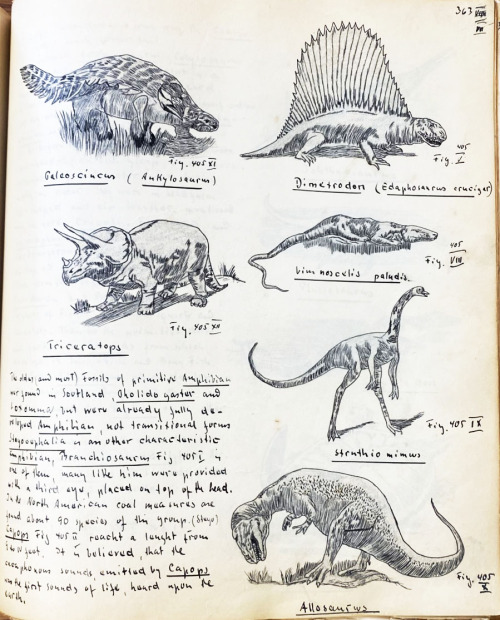 363 VIII
VII
Fig. 405 XI
Paleoscincus (Ankylosaurus)
405
Fig. V
Dimetrodon (Edaphosaurus cruciger)
405
Fig. VIII
Limnoscelis paludis.
Fig. 405 XII
Triceratops
Fig. 405 IX
Struthiomimus
405
Fig. X
Allosaurus
The oldest (and most) Fossils of primitive Amphibian
were found in Scotland, Cholidogaster and
Loxomma, but were already fully de-
veloped Amphibian, not transitional forms
Stegocephalia is an other characteristic
Amphibian, Branchiosaurus Fig 405 I is
one of them, many like him were provided
with a third eye, placed on top of the head.
In the North American coal measures are
found about 90 species of the group. (Stego)
Cacops Fig 405 II reacht a lenght from
feet. It is believed, that the
cacophonous sounds, emitted by Cacops
were the first sounds of life, heard upon the
earth.